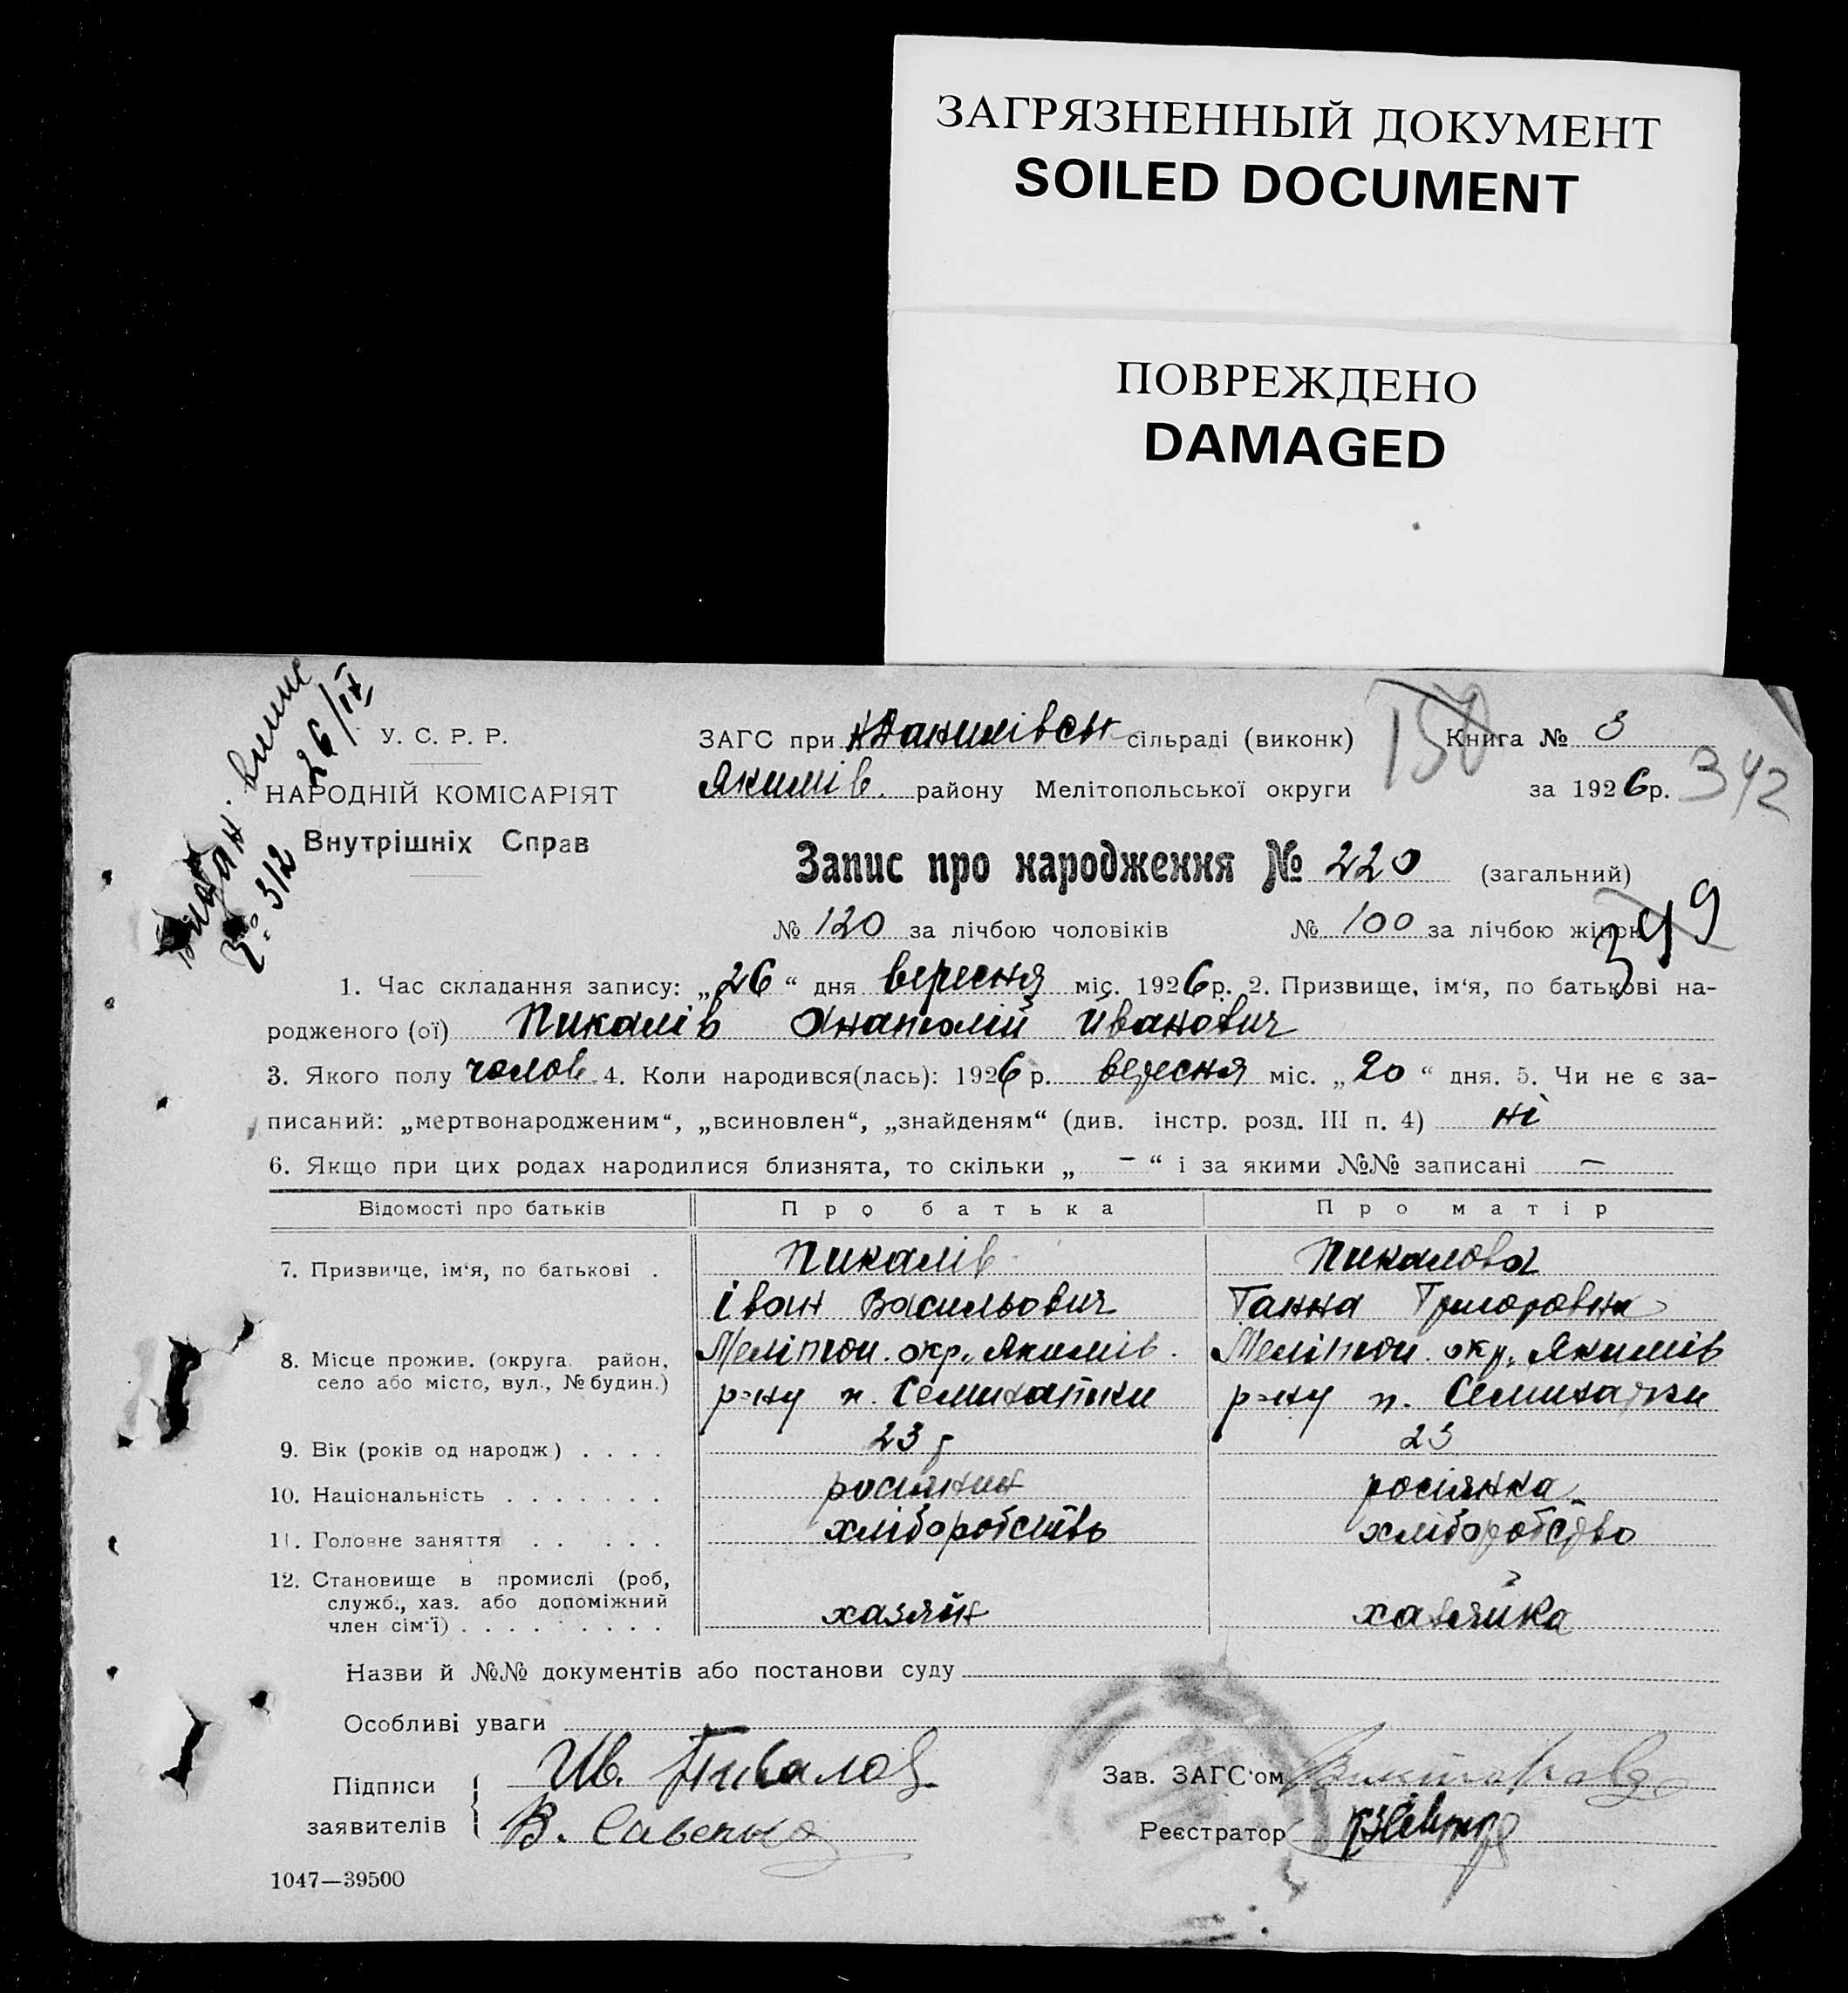 ЗАГРЯЗНЕННЫЙ ДОКУМЕНТ
SOILED DOCUMENT
ПОВРЕЖДЕНО
DAMAGED
Видан. випис
№ 312 26/IX
У. С. Р. Р.
НАРОДНІЙ КОМІСАРІЯТ
Внутрішніх Справ
ЗАГС при Н Данилівськ сільраді (виконк) Книга № 3
150
Якимів. району Мелітопольської округи за 1926р.
342
Запис про народження № 220 (загальний)
№ 120 за лічбою чоловіків № 100 за лічбою жінок
349
1. Час складання запису: „26“ дня вересня міс. 1926р. 2. Призвище, ім‘я, по батькові на-
родженого (ої) Пикалів Анатолій Иванович
3. Якого полу чолов. 4. Коли народився(лась): 1926 р. вересня міс. „20“ дня. 5. Чи не є за-
писаний: „мертвонародженим“, „всиновлен“, „знайденям“ (див. інстр. розд. III п. 4) ні
6. Якщо при цих родах народилися близнята, то скільки „ – “ і за якими №№ записані –
Відомості про батьків Про батька Про матір
7. Призвище, ім‘я, по батькові . Пикалів Пикалова
Іван Васильович Ганна Григоровна
8. Місце прожив. (округа. район, село або місто, вул., № будин.) Меліпол. окр., Якимів. Меліпол. окр., Якимів
р=ну п. Семихатки р=ну п. Семихатки
9. Вік (років од народж) . . . . 23 р 23
10. Національність . . . . . . . росіянин росіянка
11. Головне заняття . . . . . хліборобство хліборобство
12. Становище в промислі (роб, служб., хаз. або допоміжний член сім‘ї) . . . . . . . . . хазяїн хазяйка
Назви й №№ документів або постанови суду
Особливі уваги
Підписи заявителів Ив. Пикалов
В. Савенко
Зав. ЗАГС‘ом
Реєстратор
1047—39500